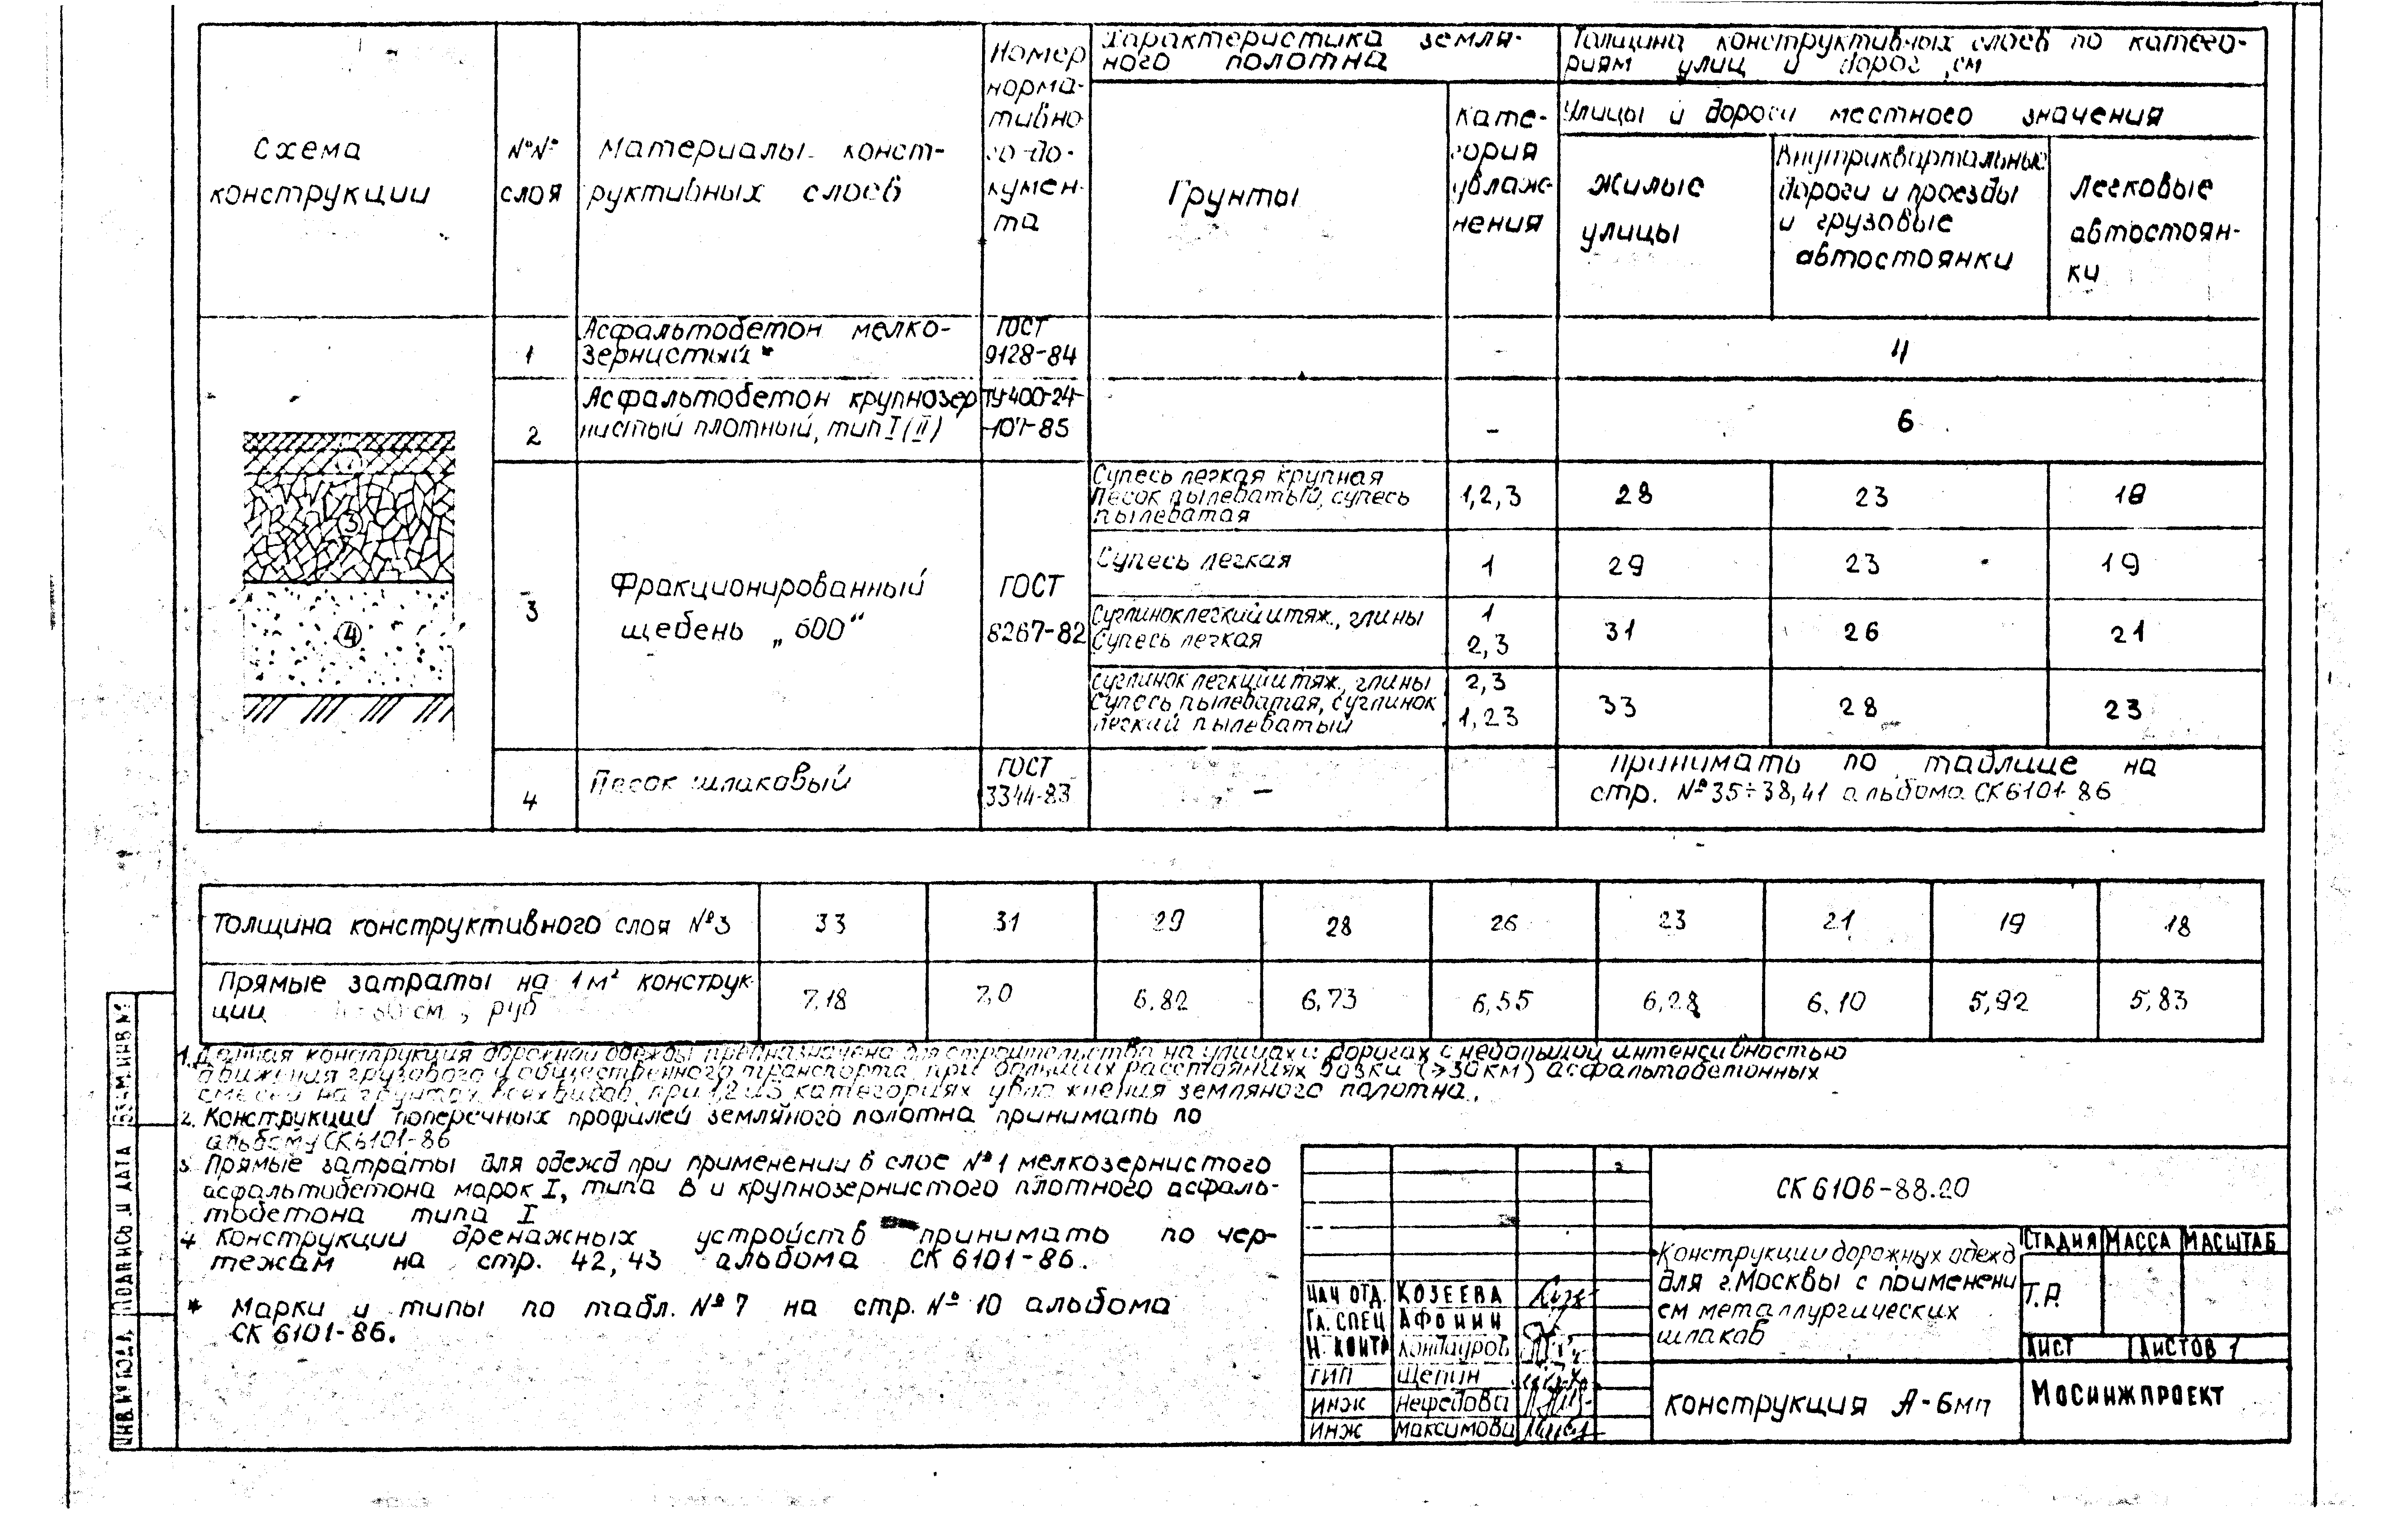 Схема
конструкции
№№
слоя
Материалы конст-
руктивных слоев
Номер
норма-
тивно
го до-
кумен-
та
Характеристика земля-
ного полотна
Грунты
кате-
гория
увлаж-
нения
Толщина конструктивных слоев по катего-
риям улиц и дорог, см
Улицы и дороги местного значения
жилые
улицы
Внутриквартальные
дороги и проезды
и грузовые
автостоянки
легковые
автостоян-
ки
1
Асфальтобетон мелко-
зернистый*
ГОСТ
9128-84
-
4
2
Асфальтобетон крупнозер
нистый плотный, тип I (II)
ТУ400-24-
-107-85
-
6
3
Фракционированный
щебень „600“
ГОСТ
8267-82
Супесь легкая крупная
Песок пылеватый, супесь
пылеватая
1,2,3
28
23
18
Супесь легкая
1
29
23
19
Суглинок легкий и тяж., глины
1
Супесь легкая
2,3
31
26
21
суглинок легкий и тяж., глины
2,3
Супесь пылеватая, суглинок
легкий пылеватый
1,23
33
28
23
4
Песок шлаковый
ГОСТ
3344-83
-
принимать по таблице на
стр. №35÷38,41 альбома СК6101-86
③
④
Толщина конструктивного слоя №3
33
31
29
28
26
23
21
19
18
Прямые затраты на 1м² конструк-
ции см, руб
7,18
7,0
6,82
6,73
6,55
6,28
6,10
5,92
5,83
1. Данная конструкция дорожной одежды предназначена для строительства на улицах и дорогах с небольшой интенсивностью
движения грузового и общественного транспорта при больших расстояниях возки (>30км) асфальтобетонных
смесей на грунтах всех видов при 1,2 и 3 категориях увлажнения земляного полотна.
2. Конструкции поперечных профилей земляного полотна принимать по
альбому СК6101-86
3 Прямые затраты для одежд при применении в слое №1 мелкозернистого
асфальтобетона марок I, типа В и крупнозернистого плотного асфаль-
тобетона типа I
4 Конструкции дренажных устройств принимать по чер-
тежам на стр. 42, 43 альбома СК 6101-86.
* Марки и типы по табл. №7 на стр. №10 альбома
СК 6101-86.
СК 6106-88.20
Конструкции дорожных одежд
для г. Москвы с применени
ем металлургических
шлаков
СТАДИЯ
МАССА
МАСШТАБ
Т.Р.
ЛИСТ
ЛИСТОВ 1
конструкция А-6мп
МОСИНЖПРОЕКТ
НАЧ ОТД.
КОЗЕЕВА
ГЛ. СПЕЦ
АФОНИН
Н. КОНТР
Кондауров
ГИП
Щепин
ИНЖ
Нефедова
ИНЖ
Максимова
ИНВ. № ПОДЛ.
ПОДПИСЬ И ДАТА
ВЗАМ ИНВ №